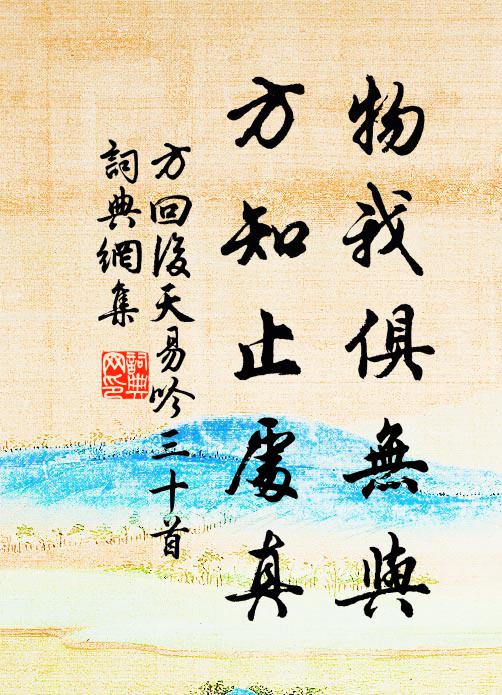 物我俱無與
方知止處真
方回後天易吟三十首
詞典網集
詞典網印